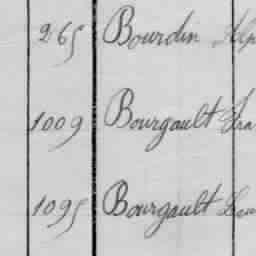 265 Bourdin Alp
1009 Bourgault Fra
1095 Bourgault